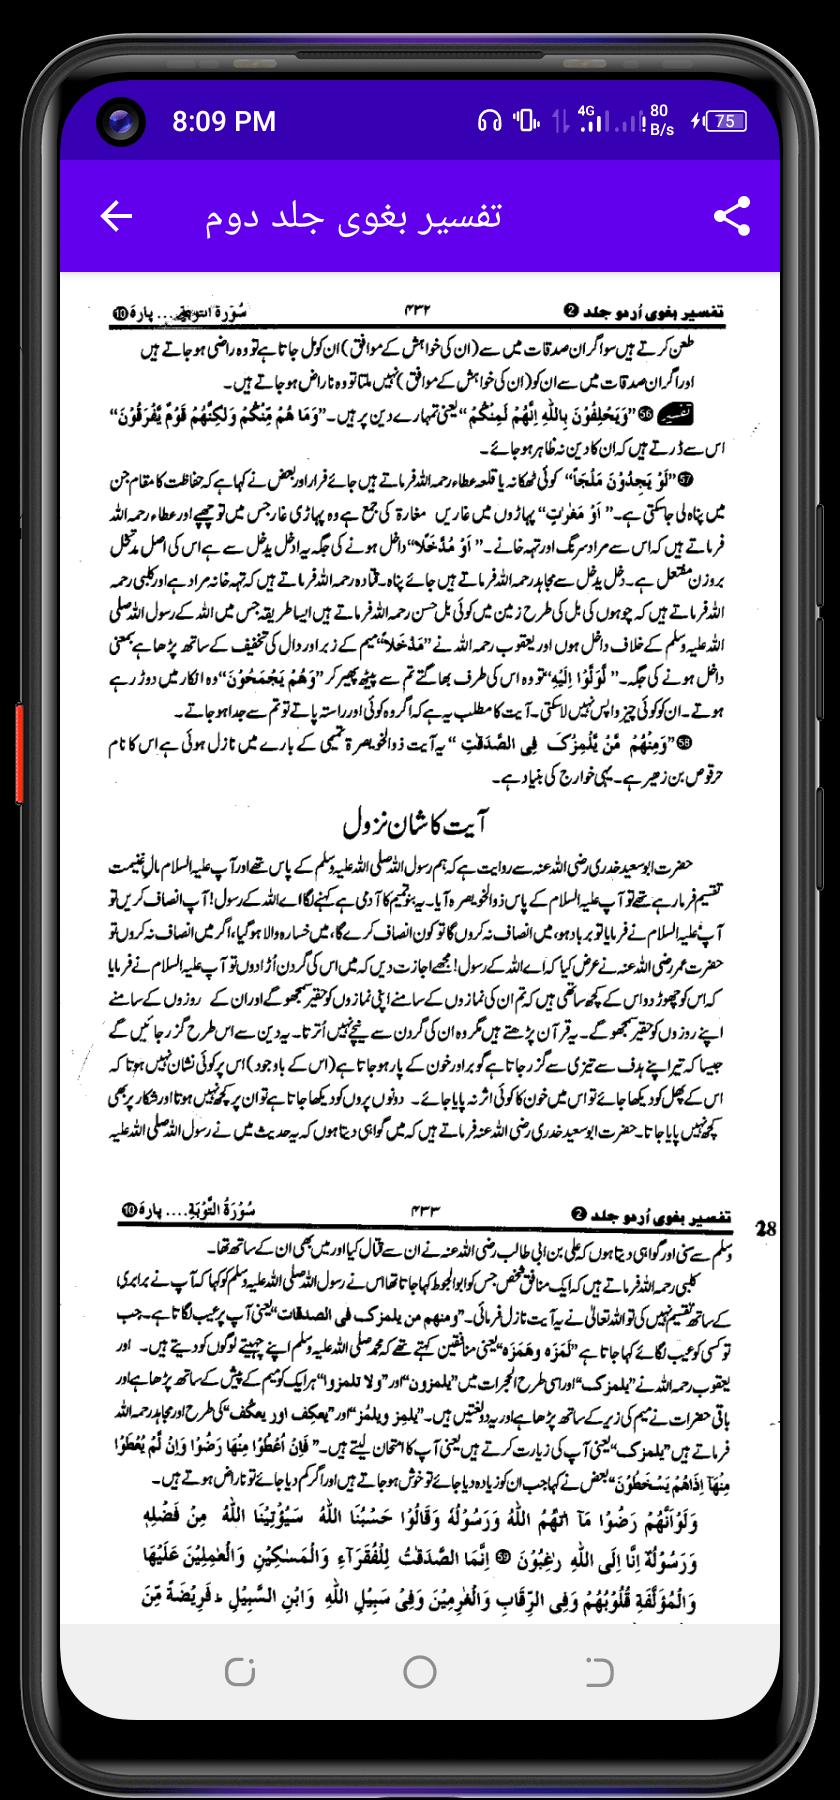 8:09 PM
4G
80 B/s
75
تفسیر بغوی جلد دوم
تفسیر بغوی اُردو جلد 2 ۴۳۲ سُوْرَة التوبة .... پارہ 10
طعن کرتے ہیں سو اگر ان صدقات میں سے (ان کی خواہش کے موافق) ان کو مل جاتا ہے تو وہ راضی ہو جاتے ہیں
اور اگر ان صدقات میں سے ان کو (ان کی خواہش کے موافق) نہیں ملتا تو وہ ناراض ہو جاتے ہیں۔
تفسیر 56 ”وَيَحْلِفُوْنَ بِاللّٰهِ اِنَّهُمْ لَمِنْكُمْ“ یعنی تمہارے دین پر ہیں۔ ”وَمَا هُمْ مِّنْكُمْ وَلٰكِنَّهُمْ قَوْمٌ يَّفْرَقُوْنَ“
اس سے ڈرتے ہیں کہ ان کا دین نہ ظاہر ہو جائے۔
57 ”لَوْ يَجِدُوْنَ مَلْجَاً“ کوئی ٹھکانہ یا قلعہ عطاء رحمہ اللہ فرماتے ہیں جائے فرار اور بعض نے کہا ہے کہ حفاظت کا مقام جن
میں پناہ لی جاسکتی ہے۔ ”اَوْ مَغٰرٰتٍ“ پہاڑوں میں غاریں مغارة کی جمع ہے وہ پہاڑی غار جس میں تو چھپے اور عطاء رحمہ اللہ
فرماتے ہیں کہ اس سے مراد سرنگ اور تہہ خانے۔ ”اَوْ مُدَّخَلًا“ داخل ہونے کی جگہ یہ ادخل یدخل سے ہے اس کی اصل مدتخل
بروزن مفتعل ہے۔ دخل یدخل سے مجاہد رحمہ اللہ فرماتے ہیں جائے پناہ۔ قتادہ رحمہ اللہ فرماتے ہیں کہ تہہ خانہ مراد ہے اور کلبی رحمہ
اللہ فرماتے ہیں کہ چوہوں کی بل کی طرح زمین میں کوئی بل حسن رحمہ اللہ فرماتے ہیں ایسا طریقہ جس میں اللہ کے رسول اللہ صلی
اللہ علیہ وسلم کے خلاف داخل ہوں اور یعقوب رحمہ اللہ نے ”مَدْخَلًا“ میم کے زبر اور دال کی تخفیف کے ساتھ پڑھا ہے بمعنی
داخل ہونے کی جگہ۔ ”لَّوَلَّوْا اِلَيْهِ“ تو وہ اس کی طرف بھاگتے تم سے پیٹھ پھیر کر ”وَهُمْ يَجْمَحُوْنَ“ وہ انکار میں دوڑ رہے
ہوتے۔ ان کو کوئی چیز واپس نہیں لاسکتی۔ آیت کا مطلب یہ ہے کہ اگر وہ کوئی اور راستہ پاتے تو تم سے جدا ہو جاتے۔
58 ”وَمِنْهُمْ مَّنْ يَّلْمِزُكَ فِى الصَّدَقٰتِ“ یہ آیت ذوالخویصرۃ تمیمی کے بارے میں نازل ہوئی ہے اس کا نام
حرقوص بن زھیر ہے۔ یہی خوارج کی بنیاد ہے۔
آیت کا شان نزول
حضرت ابو سعید خدری رضی اللہ عنہ سے روایت ہے کہ ہم رسول اللہ صلی اللہ علیہ وسلم کے پاس تھے اور آپ علیہ السلام مال غنیمت
تقسیم فرما رہے تھے تو آپ علیہ السلام کے پاس ذوالخویصرہ آیا۔ یہ بنو تمیم کا آدمی ہے کہنے لگا اے اللہ کے رسول! آپ انصاف کریں تو
آپ علیہ السلام نے فرمایا تو برباد ہو، میں انصاف نہ کروں گا تو کون انصاف کرے گا، میں خسارہ والا ہو گیا، اگر میں انصاف نہ کروں تو
حضرت عمر رضی اللہ عنہ نے عرض کیا کہ اے اللہ کے رسول! مجھے اجازت دیں کہ میں اس کی گردن اُڑا دوں تو آپ علیہ السلام نے فرمایا
کہ اس کو چھوڑ دو اس کے کچھ ساتھی ہیں کہ تم ان کی نمازوں کے سامنے اپنی نمازوں کو حقیر سمجھو گے اور ان کے روزوں کے سامنے
اپنے روزوں کو حقیر سمجھو گے۔ یہ قرآن پڑھتے ہیں مگر وہ ان کی گردن سے نیچے نہیں اُترتا۔ یہ دین سے اس طرح گزر جائیں گے
جیسا کہ تیر اپنے ہدف سے تیزی سے گزر جاتا ہے گوبر اور خون کے پار ہو جاتا ہے (اس کے باوجود) اس پر کوئی نشان نہیں ہوتا کہ
اس کے پھل کو دیکھا جائے تو اس میں خون کا کوئی اثر نہ پایا جائے۔ دونوں پروں کو دیکھا جاتا ہے تو ان پر کچھ نہیں ہوتا اور شکار پر بھی
کچھ نہیں پایا جاتا۔ حضرت ابو سعید خدری رضی اللہ عنہ فرماتے ہیں کہ میں گواہی دیتا ہوں کہ یہ حدیث میں نے رسول اللہ صلی اللہ علیہ
تفسیر بغوی اُردو جلد 2 ۴۳۳ سُوْرَةُ التَّوْبَةِ.... پارہ 10
28
وسلم سے سنی اور گواہی دیتا ہوں کہ علی بن ابی طالب رضی اللہ عنہ نے ان سے قتال کیا اور میں بھی ان کے ساتھ تھا۔
کلبی رحمہ اللہ فرماتے ہیں کہ ایک منافق شخص جس کو ابوالجوط کہا جاتا تھا اس نے رسول اللہ صلی اللہ علیہ وسلم کو کہا کہ آپ نے برابری
کے ساتھ تقسیم نہیں کی تو اللہ تعالیٰ نے یہ آیت نازل فرمائی۔ ”ومنهم من يلمزك فى الصدقات“ یعنی آپ پر عیب لگاتا ہے۔ جب
تو کسی کو عیب لگائے کہا جاتا ہے ”لَمَزَه وهَمَزَه“ یعنی منافقین کہتے تھے کہ محمد صلی اللہ علیہ وسلم اپنے چہیتے لوگوں کو دیتے ہیں۔ اور
یعقوب رحمہ اللہ نے ”يلمزك“ اور اسی طرح الحجرات میں ”يلمزون“ اور ”ولا تلمزوا“ ہر ایک کو میم کے پیش کے ساتھ پڑھا ہے اور
باقی حضرات نے میم کی زیر کے ساتھ پڑھا ہے اور یہ دو لغتیں ہیں۔ ”يلمِز ويلمُز“ اور ”يعكِف اور يعكُف“ کی طرح اور مجاہد رحمہ اللہ
فرماتے ہیں ”يلمزك“ یعنی آپ کی زیارت کرتے ہیں یعنی آپ کا امتحان لیتے ہیں۔ ”فَاِنْ اُعْطُوْا مِنْهَا رَضُوْا وَاِنْ لَّمْ يُعْطَوْا
مِنْهَآ اِذَاهُمْ يَسْخَطُوْنَ“ بعض نے کہا جب ان کو زیادہ دیا جائے تو خوش ہو جاتے ہیں اور اگر کم دیا جائے تو ناراض ہوتے ہیں۔
وَلَوْ اَنَّهُمْ رَضُوْا مَآ اٰتٰهُمُ اللّٰهُ وَرَسُوْلُهٗ وَقَالُوْا حَسْبُنَا اللّٰهُ سَيُؤْتِيْنَا اللّٰهُ مِنْ فَضْلِهٖ
وَرَسُوْلُهٗٓ اِنَّآ اِلَى اللّٰهِ رٰغِبُوْنَ 59 اِنَّمَا الصَّدَقٰتُ لِلْفُقَرَآءِ وَالْمَسٰكِيْنِ وَالْعٰمِلِيْنَ عَلَيْهَا
وَالْمُؤَلَّفَةِ قُلُوْبُهُمْ وَفِى الرِّقَابِ وَالْغٰرِمِيْنَ وَفِىْ سَبِيْلِ اللّٰهِ وَابْنِ السَّبِيْلِ ؕ فَرِيْضَةً مِّنَ